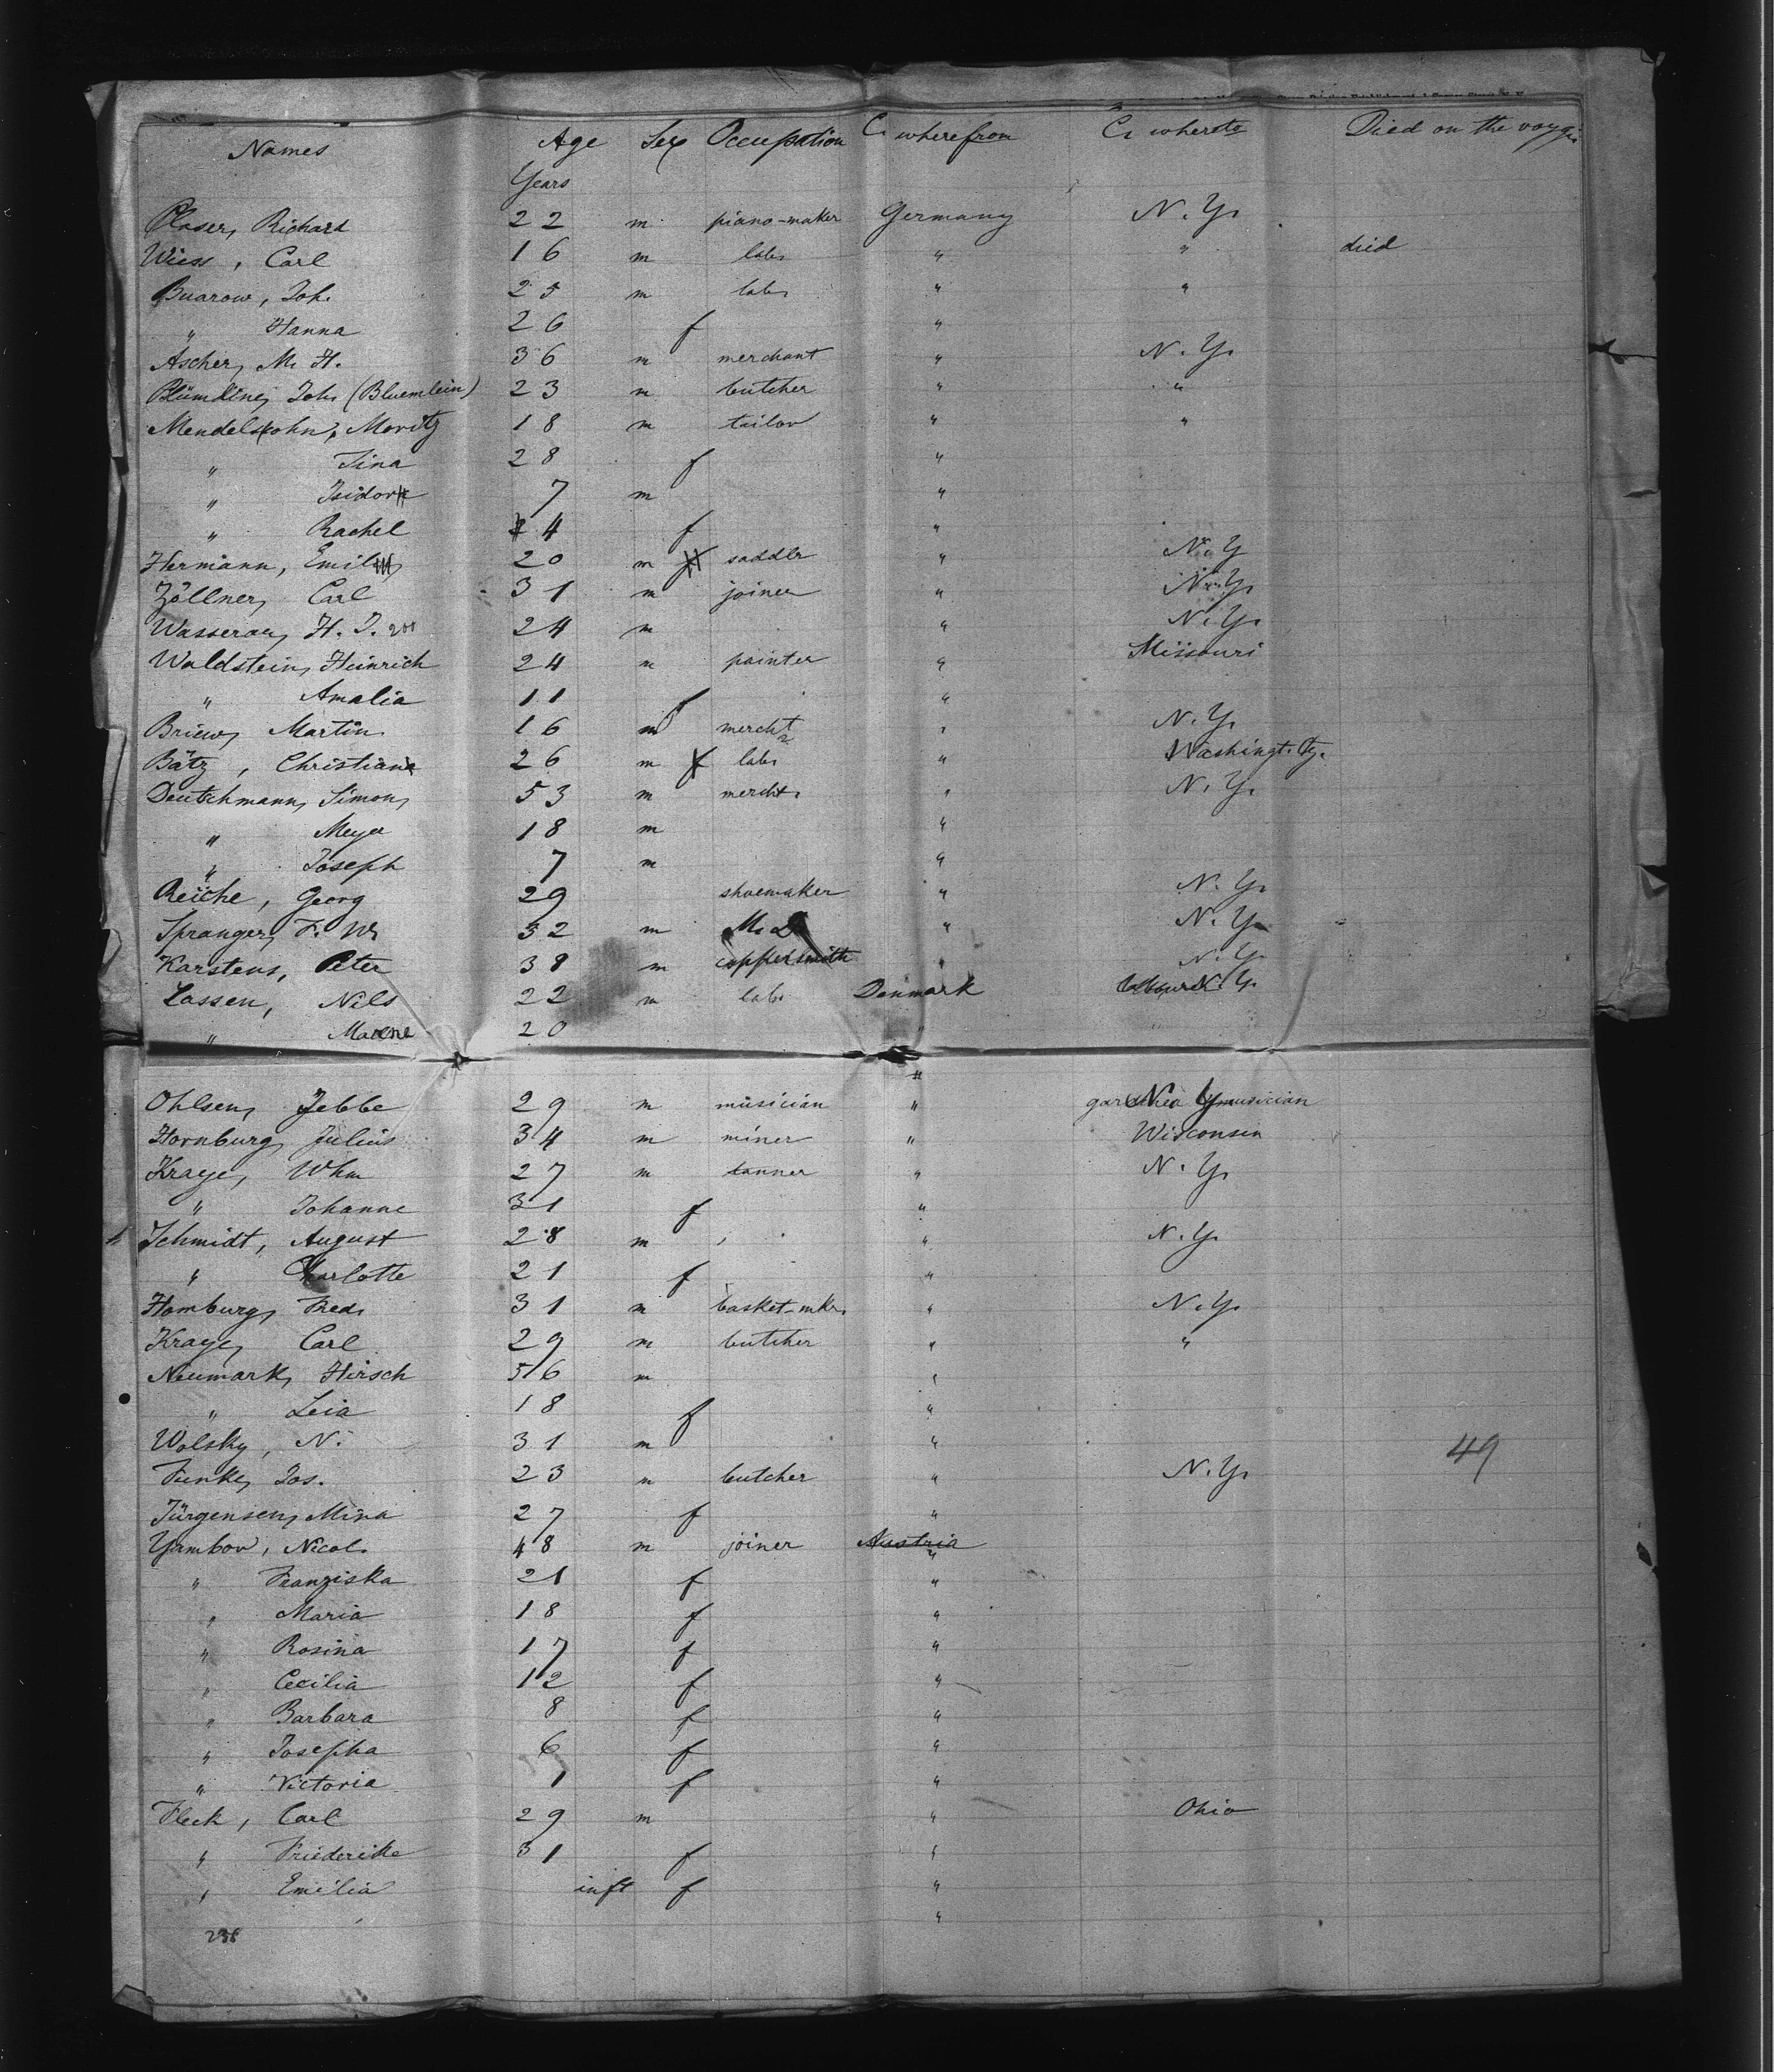 Names Age Sex Occupation C. wherefrom C. whereto Died on the voyge
Years
Richard 22 m piano-maker Germany N.Y.
Wiess, Carl 16 m lab. " " died
Buarow, Joh. 25 m lab. " "
" Hanna 26 f "
Ascher, M. H. 36 m merchant " N.Y.
Blümline, Joh. (Bluemlein) 23 m butcher " "
Mendelssohn, Moritz 18 m tailor " "
" Tina 28 f "
" Isidor 7 m "
" Rachel 4 f "
Hermann, Emil 20 m saddlr " N.Y
Zöllner, Carl 31 m joiner " N.Y.
H. J. 24 m " N.Y.
Waldstein, Heinrich 24 m painter " Missouri
" Amalia 11 f "
Briew, Martin 16 m mercht " N.Y.
Bätz, Christian 26 m lab. " Washingt. Ty.
Deutchmann, Simon, 53 m mercht. " N.Y.
" Meyer 18 m "
" Joseph 7 m "
Reiche, Georg 29 shoemaker " N.Y.
Spranger, F. W. 32 m M.D. " N.Y.
Karstens, Peter 38 m coppersmith " N.Y.
Lassen, Nils 22 m lab. Denmark N.Y.
" Marene 20
"
Ohlsen, Jebbe 29 m musician " N.Y. musician
Hornburg, Julius 34 m miner " Wisconsin
Kraye, Whm 27 m tanner " N.Y.
" Johanne 31 f "
Schmidt, August 28 m " N.Y.
" Charlotte 21 f "
Homburg, Fred. 31 m basket-mkr. " N.Y.
Kraye, Carl 29 m butcher " "
Neumark, Hirsch 56 m "
" Leia 18 f "
Wolsky, N. 31 m " 49
Funke, Jos. 23 m butcher " N.Y.
Jürgensen, Mina 27 f "
Nicol. 48 m joiner Austria "
" Franziska 21 f "
" Maria 18 f "
" Rosina 17 f "
" Cecilia 12 f "
" Barbara 8 f "
" Josepha 6 f "
" Victoria 1 f "
Fleck, Carl 29 m " Ohio
" Friederike 31 f "
" Emilia inft f "
"